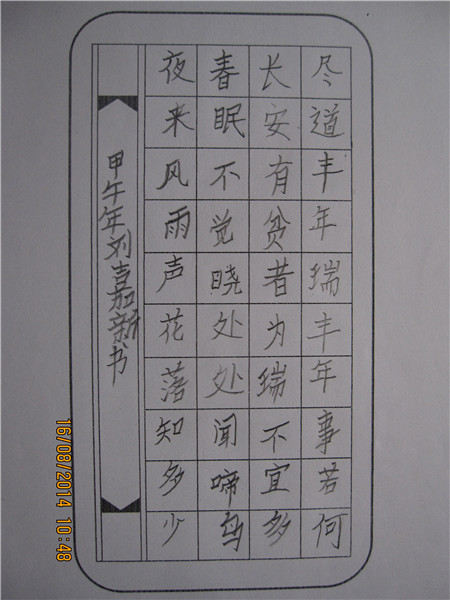 尽道丰年瑞丰年事若何
长安有贫者为瑞不宜多
春眠不觉晓处处闻啼鸟
夜来风雨声花落知多少
甲午年刘嘉新书
16/08/2014 10:48